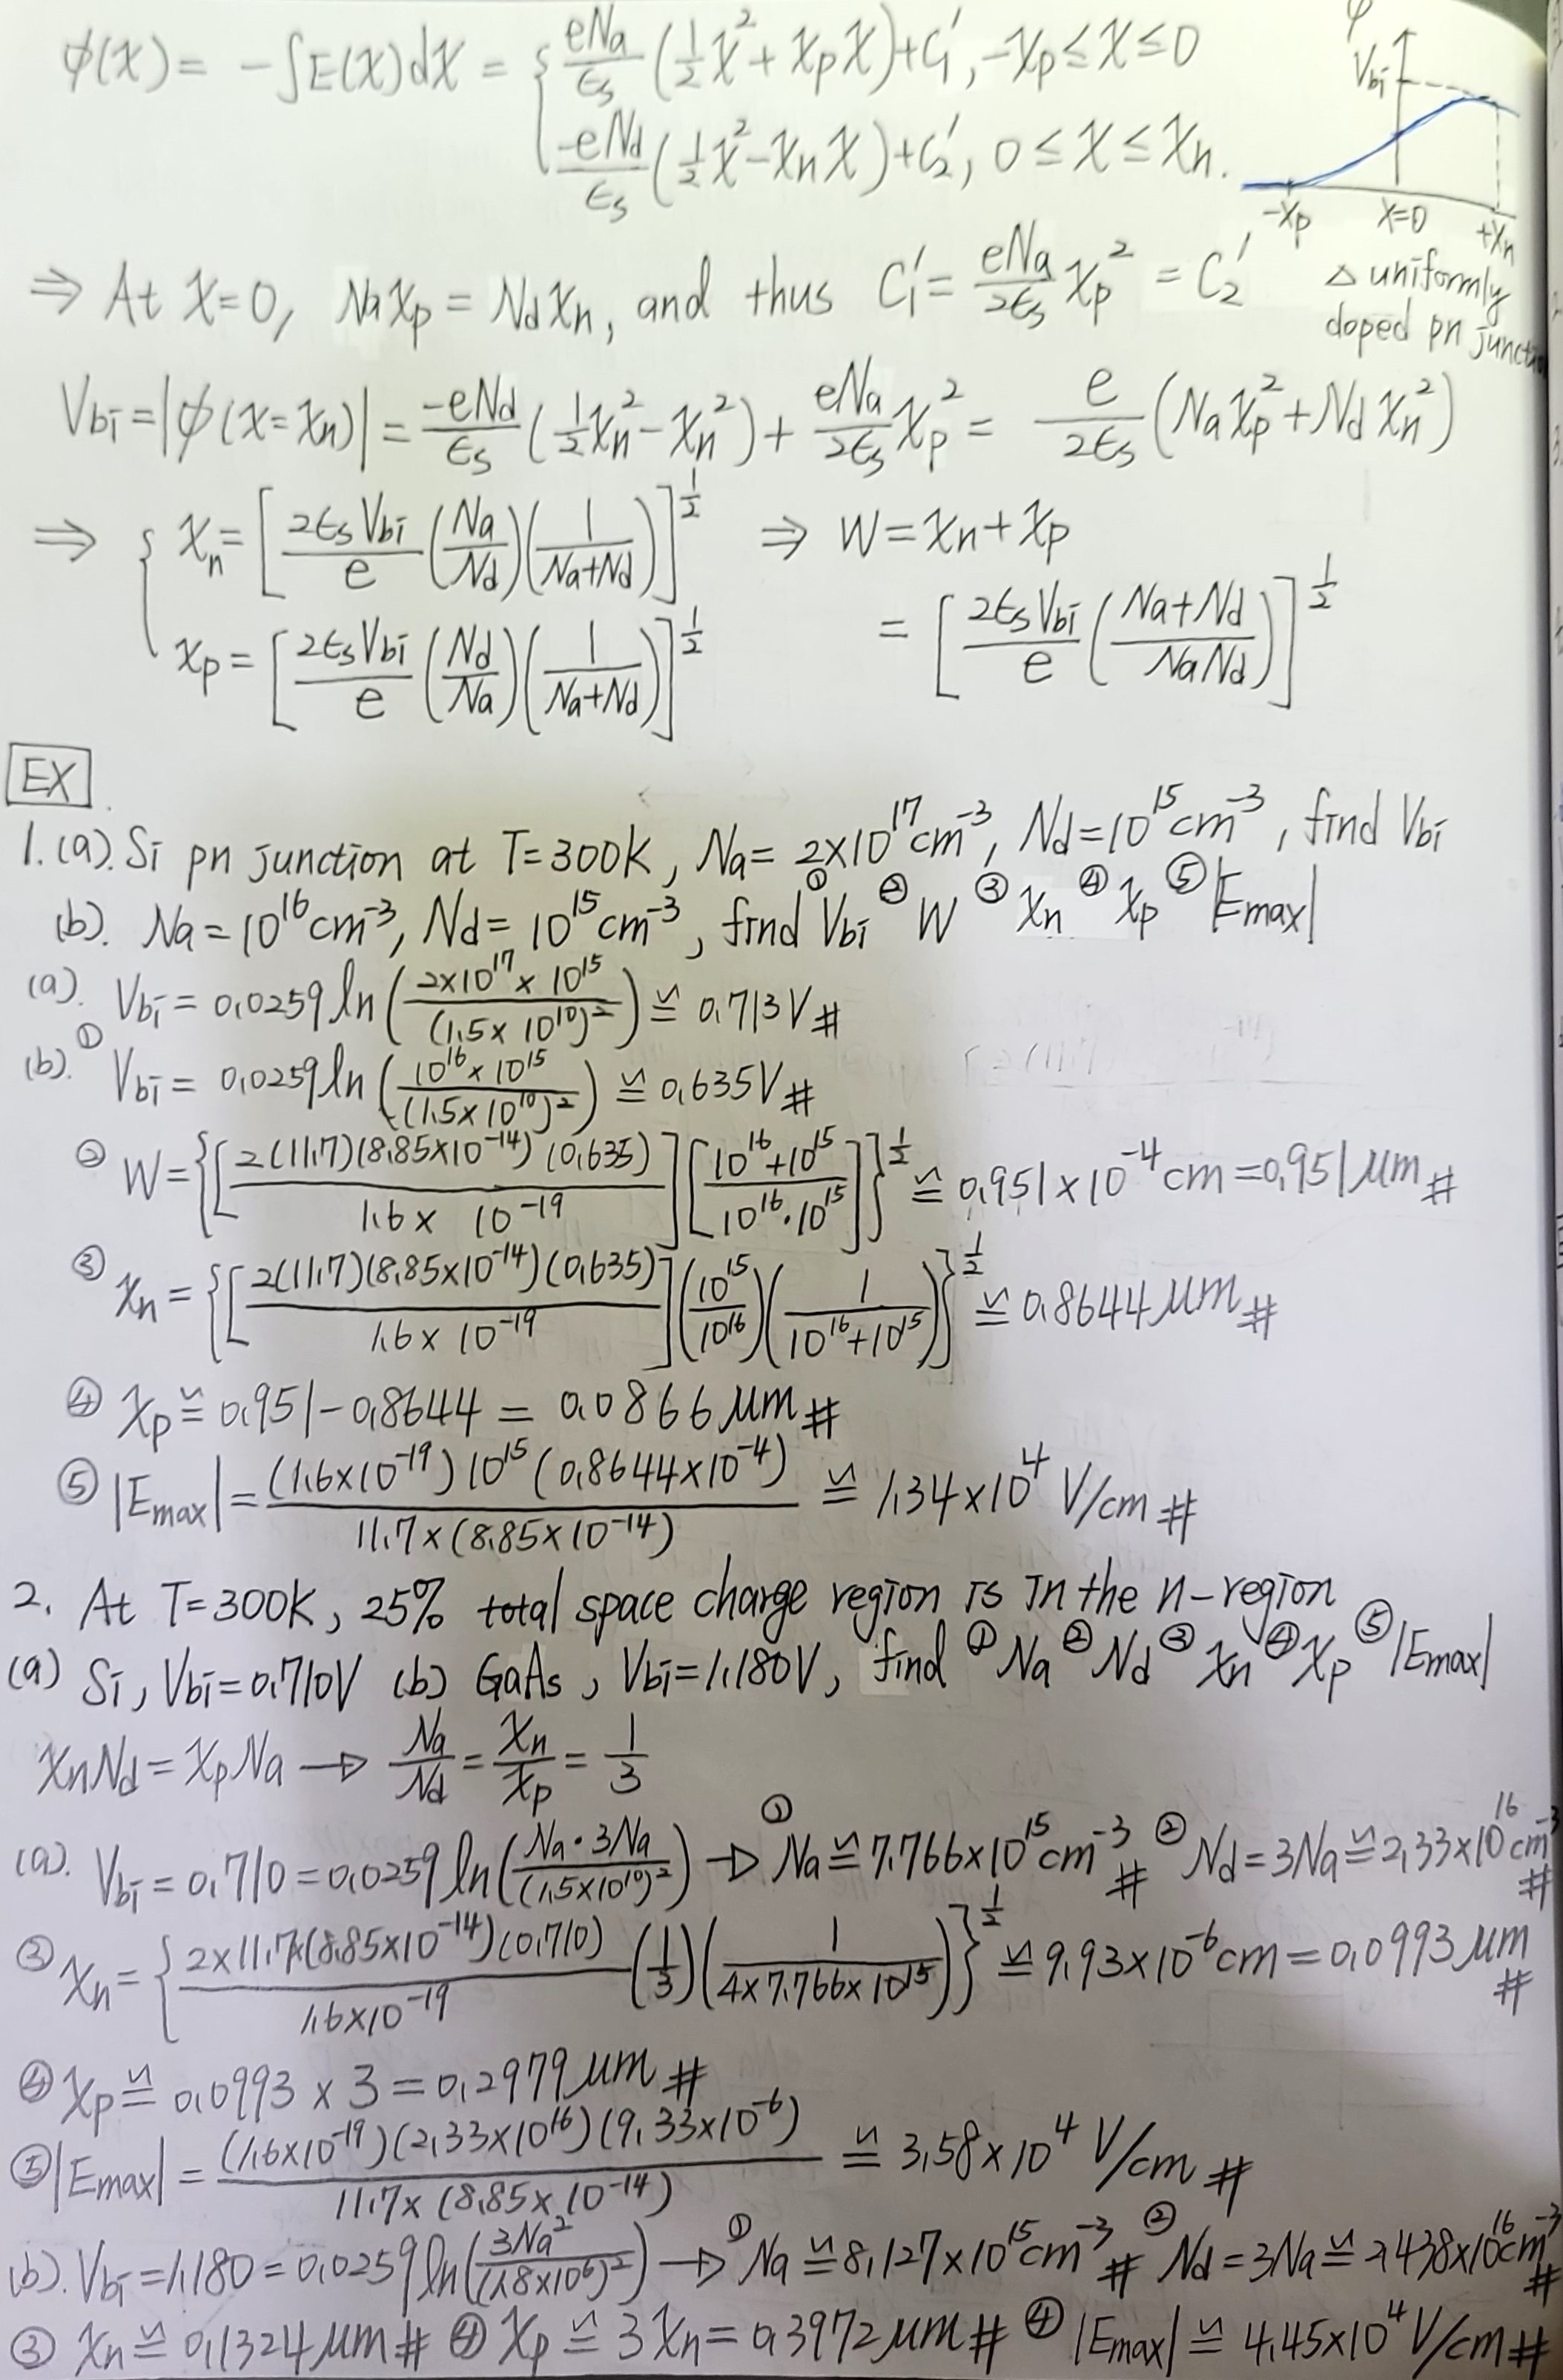 φ(x) = -∫E(x)dx = { eNa/εs (1/2 x² + xp x) + C₁', -xp ≤ x ≤ 0
-eNd/εs (1/2 x² - xn x) + C₂', 0 ≤ x ≤ xn.
φ
Vbi
-xp x=0 +xn
△ uniformly
doped pn junction
⇒ At x=0, Naxp = Ndxn, and thus C₁' = eNa/2εs xp² = C₂'
Vbi = |φ(x=xn)| = -eNd/εs (1/2 xn² - xn²) + eNa/2εs xp² = e/2εs (Na xp² + Nd xn²)
⇒ { xn = [2εsVbi/e (Na/Nd)(1/(Na+Nd))]^1/2 ⇒ W = xn + xp
xp = [2εsVbi/e (Nd/Na)(1/(Na+Nd))]^1/2 = [2εsVbi/e ((Na+Nd)/(NaNd))]^1/2
EX
1. (a). Si pn junction at T=300K, Na = 2×10¹⁷cm⁻³, Nd=10¹⁵cm⁻³, find Vbi
(b). Na = 10¹⁶cm⁻³, Nd = 10¹⁵cm⁻³, find ①Vbi ②W ③xn ④xp ⑤|Emax|
(a). Vbi = 0.0259 ln(2×10¹⁷×10¹⁵/(1.5×10¹⁰)²) ≅ 0.713V #
(b). ① Vbi = 0.0259 ln(10¹⁶×10¹⁵/(1.5×10¹⁰)²) ≅ 0.635V #
② W = {[2(11.7)(8.85×10⁻¹⁴)(0.635)/1.6×10⁻¹⁹][(10¹⁶+10¹⁵)/(10¹⁶·10¹⁵)]}^1/2 ≅ 0.951×10⁻⁴cm = 0.951μm #
③ xn = {[2(11.7)(8.85×10⁻¹⁴)(0.635)/1.6×10⁻¹⁹](10¹⁵/10¹⁶)(1/(10¹⁶+10¹⁵))}^1/2 ≅ 0.8644μm #
④ xp ≅ 0.951-0.8644 = 0.0866μm #
⑤ |Emax| = (1.6×10⁻¹⁹)10¹⁵(0.8644×10⁻⁴)/11.7×(8.85×10⁻¹⁴) ≅ 1.34×10⁴ V/cm #
2. At T=300K, 25% total space charge region is in the n-region
(a) Si, Vbi=0.710V (b) GaAs, Vbi=1.180V, find ①Na ②Nd ③xn ④xp ⑤|Emax|
xnNd = xpNa → Na/Nd = xn/xp = 1/3
(a). Vbi = 0.710 = 0.0259 ln(Na·3Na/(1.5×10¹⁰)²) → ① Na ≅ 7.766×10¹⁵cm⁻³ # ② Nd = 3Na ≅ 2.33×10¹⁶cm⁻³ #
③ xn = {2×11.7×(8.85×10⁻¹⁴)(0.710)/1.6×10⁻¹⁹ (1/3)(1/(4×7.766×10¹⁵))}^1/2 ≅ 9.93×10⁻⁶cm = 0.0993μm #
④ xp ≅ 0.0993×3 = 0.2979μm #
⑤ |Emax| = (1.6×10⁻¹⁹)(2.33×10¹⁶)(9.33×10⁻⁶)/11.7×(8.85×10⁻¹⁴) ≅ 3.58×10⁴ V/cm #
(b). Vbi = 1.180 = 0.0259 ln(3Na²/(1.8×10⁶)²) → ① Na ≅ 8.127×10¹⁵cm⁻³ # ② Nd = 3Na ≅ 2.438×10¹⁶cm⁻³ #
③ xn ≅ 0.1324μm # ④ xp ≅ 3xn = 0.3972μm # ④ |Emax| ≅ 4.45×10⁴V/cm #